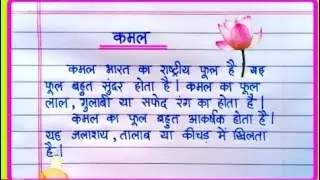 कमल
कमल भारत का राष्ट्रीय फूल है। यह
फूल बहुत सुंदर होता है। कमल का फूल
लाल, गुलाबी या सफेद रंग का होता है।
कमल का फूल बहुत आकर्षक होता है।
यह जलाशय, तालाब या कीचड़ में खिलता
है।